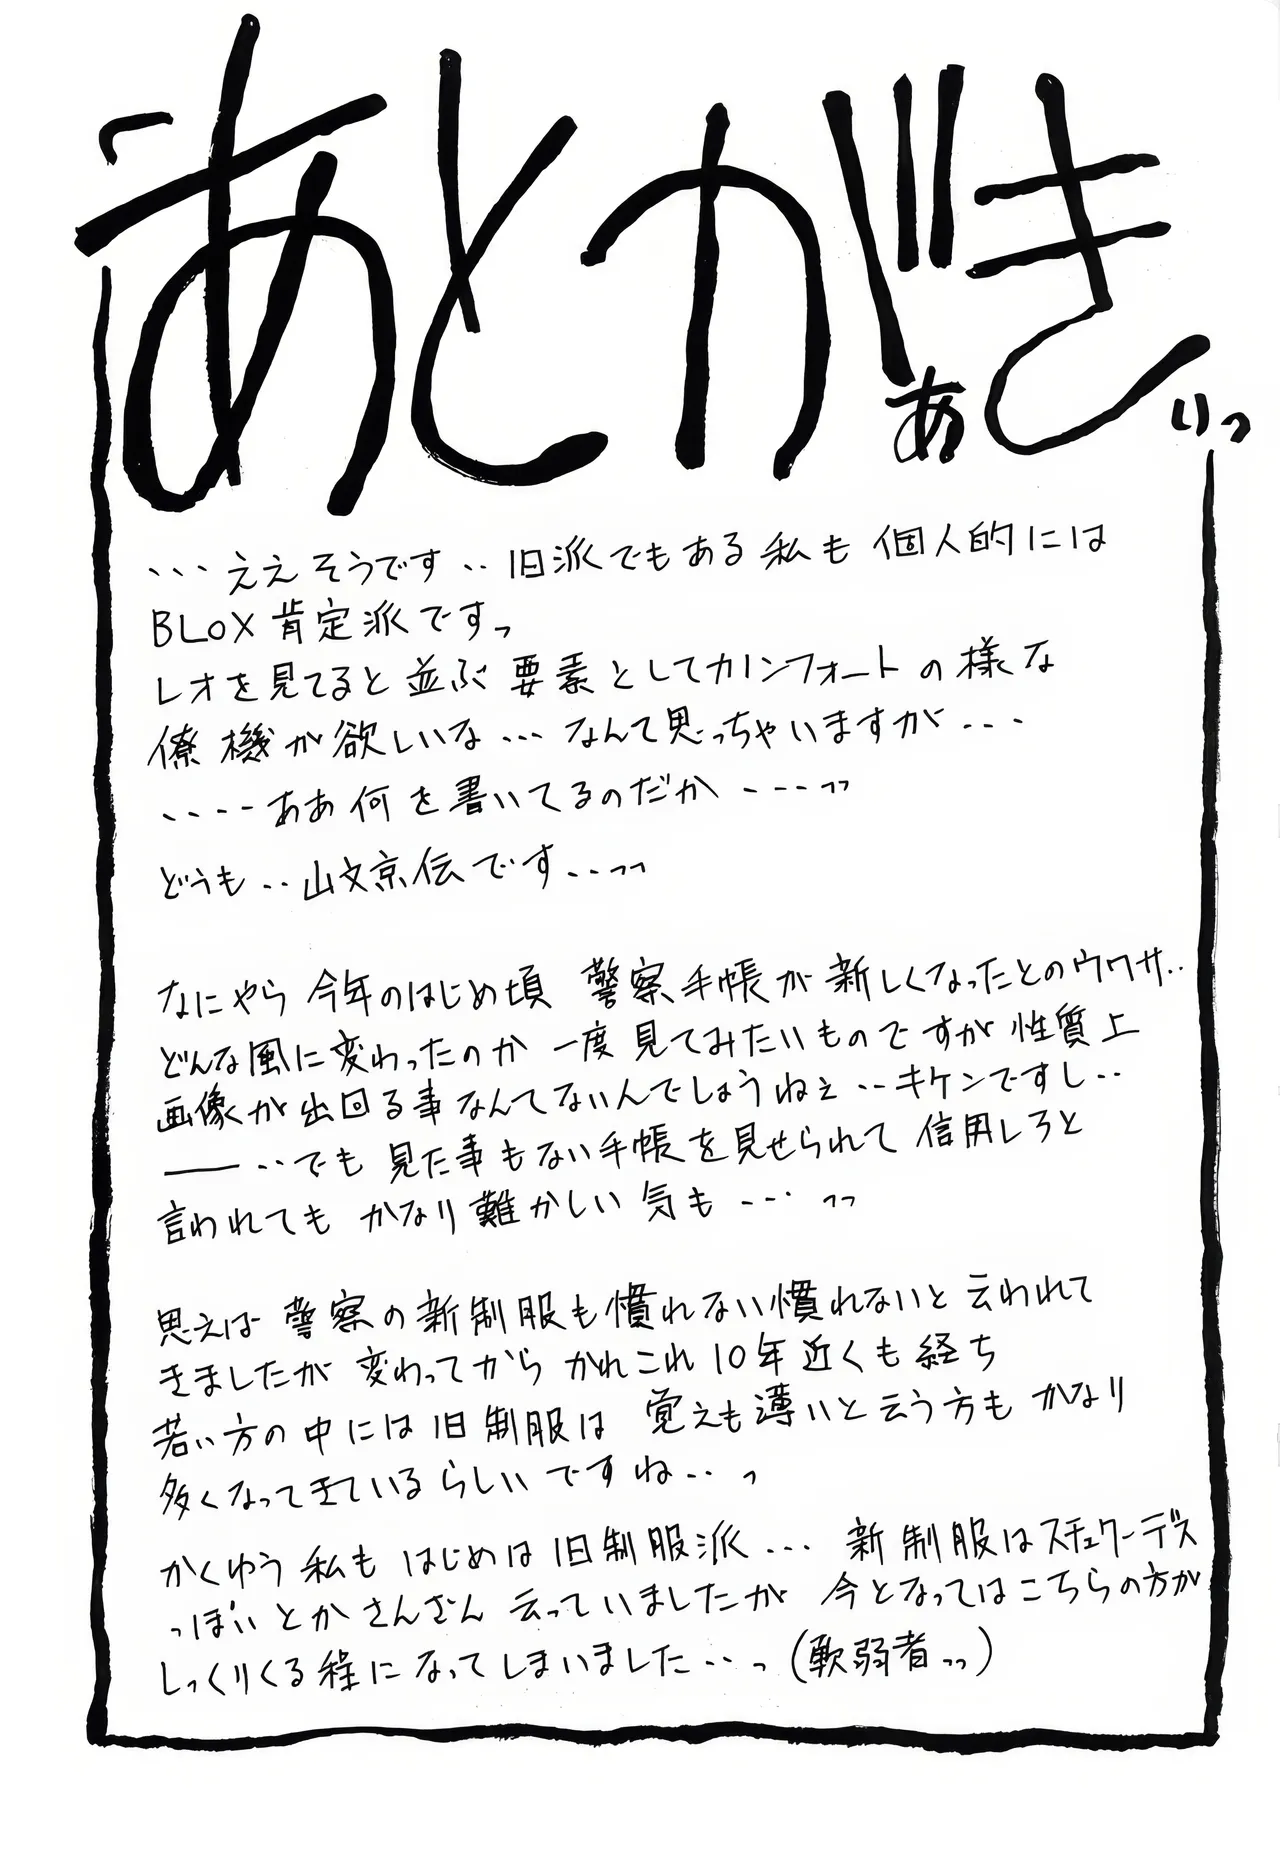 あとがぁきぃっ
…ええそうです‥旧派でもある私も個人的には
BLOX肯定派ですっ
レオを見てると並ぶ要素としてカノンフォートの様な
僚機が欲しいな…なんて思っちゃいますが…
‥‥ああ何を書いてるのだか…っっ
どうも‥山文京伝です‥っっ
なにやら今年のはじめ頃 警察手帳が新しくなったとのウワサ‥
どんな風に変わったのか一度見てみたいものですが性質上
画像が出回る事なんてないんでしょうねぇ‥キケンですし‥
──‥でも見た事もない手帳を見せられて信用しろと
言われてもかなり難かしい気も…っっ
思えば警察の新制服も慣れない慣れないと云われて
きましたが変わってからかれこれ10年近くも経ち
若い方の中には旧制服は覚えも薄いと云う方もかなり
多くなってきているらしいですね‥っ
かくゆう私もはじめは旧制服派…新制服はスチュワーデス
っぽいとかさんざん云っていましたが今となってはこちらの方が
しっくりくる程になってしまいました‥っ(軟弱者っっ)